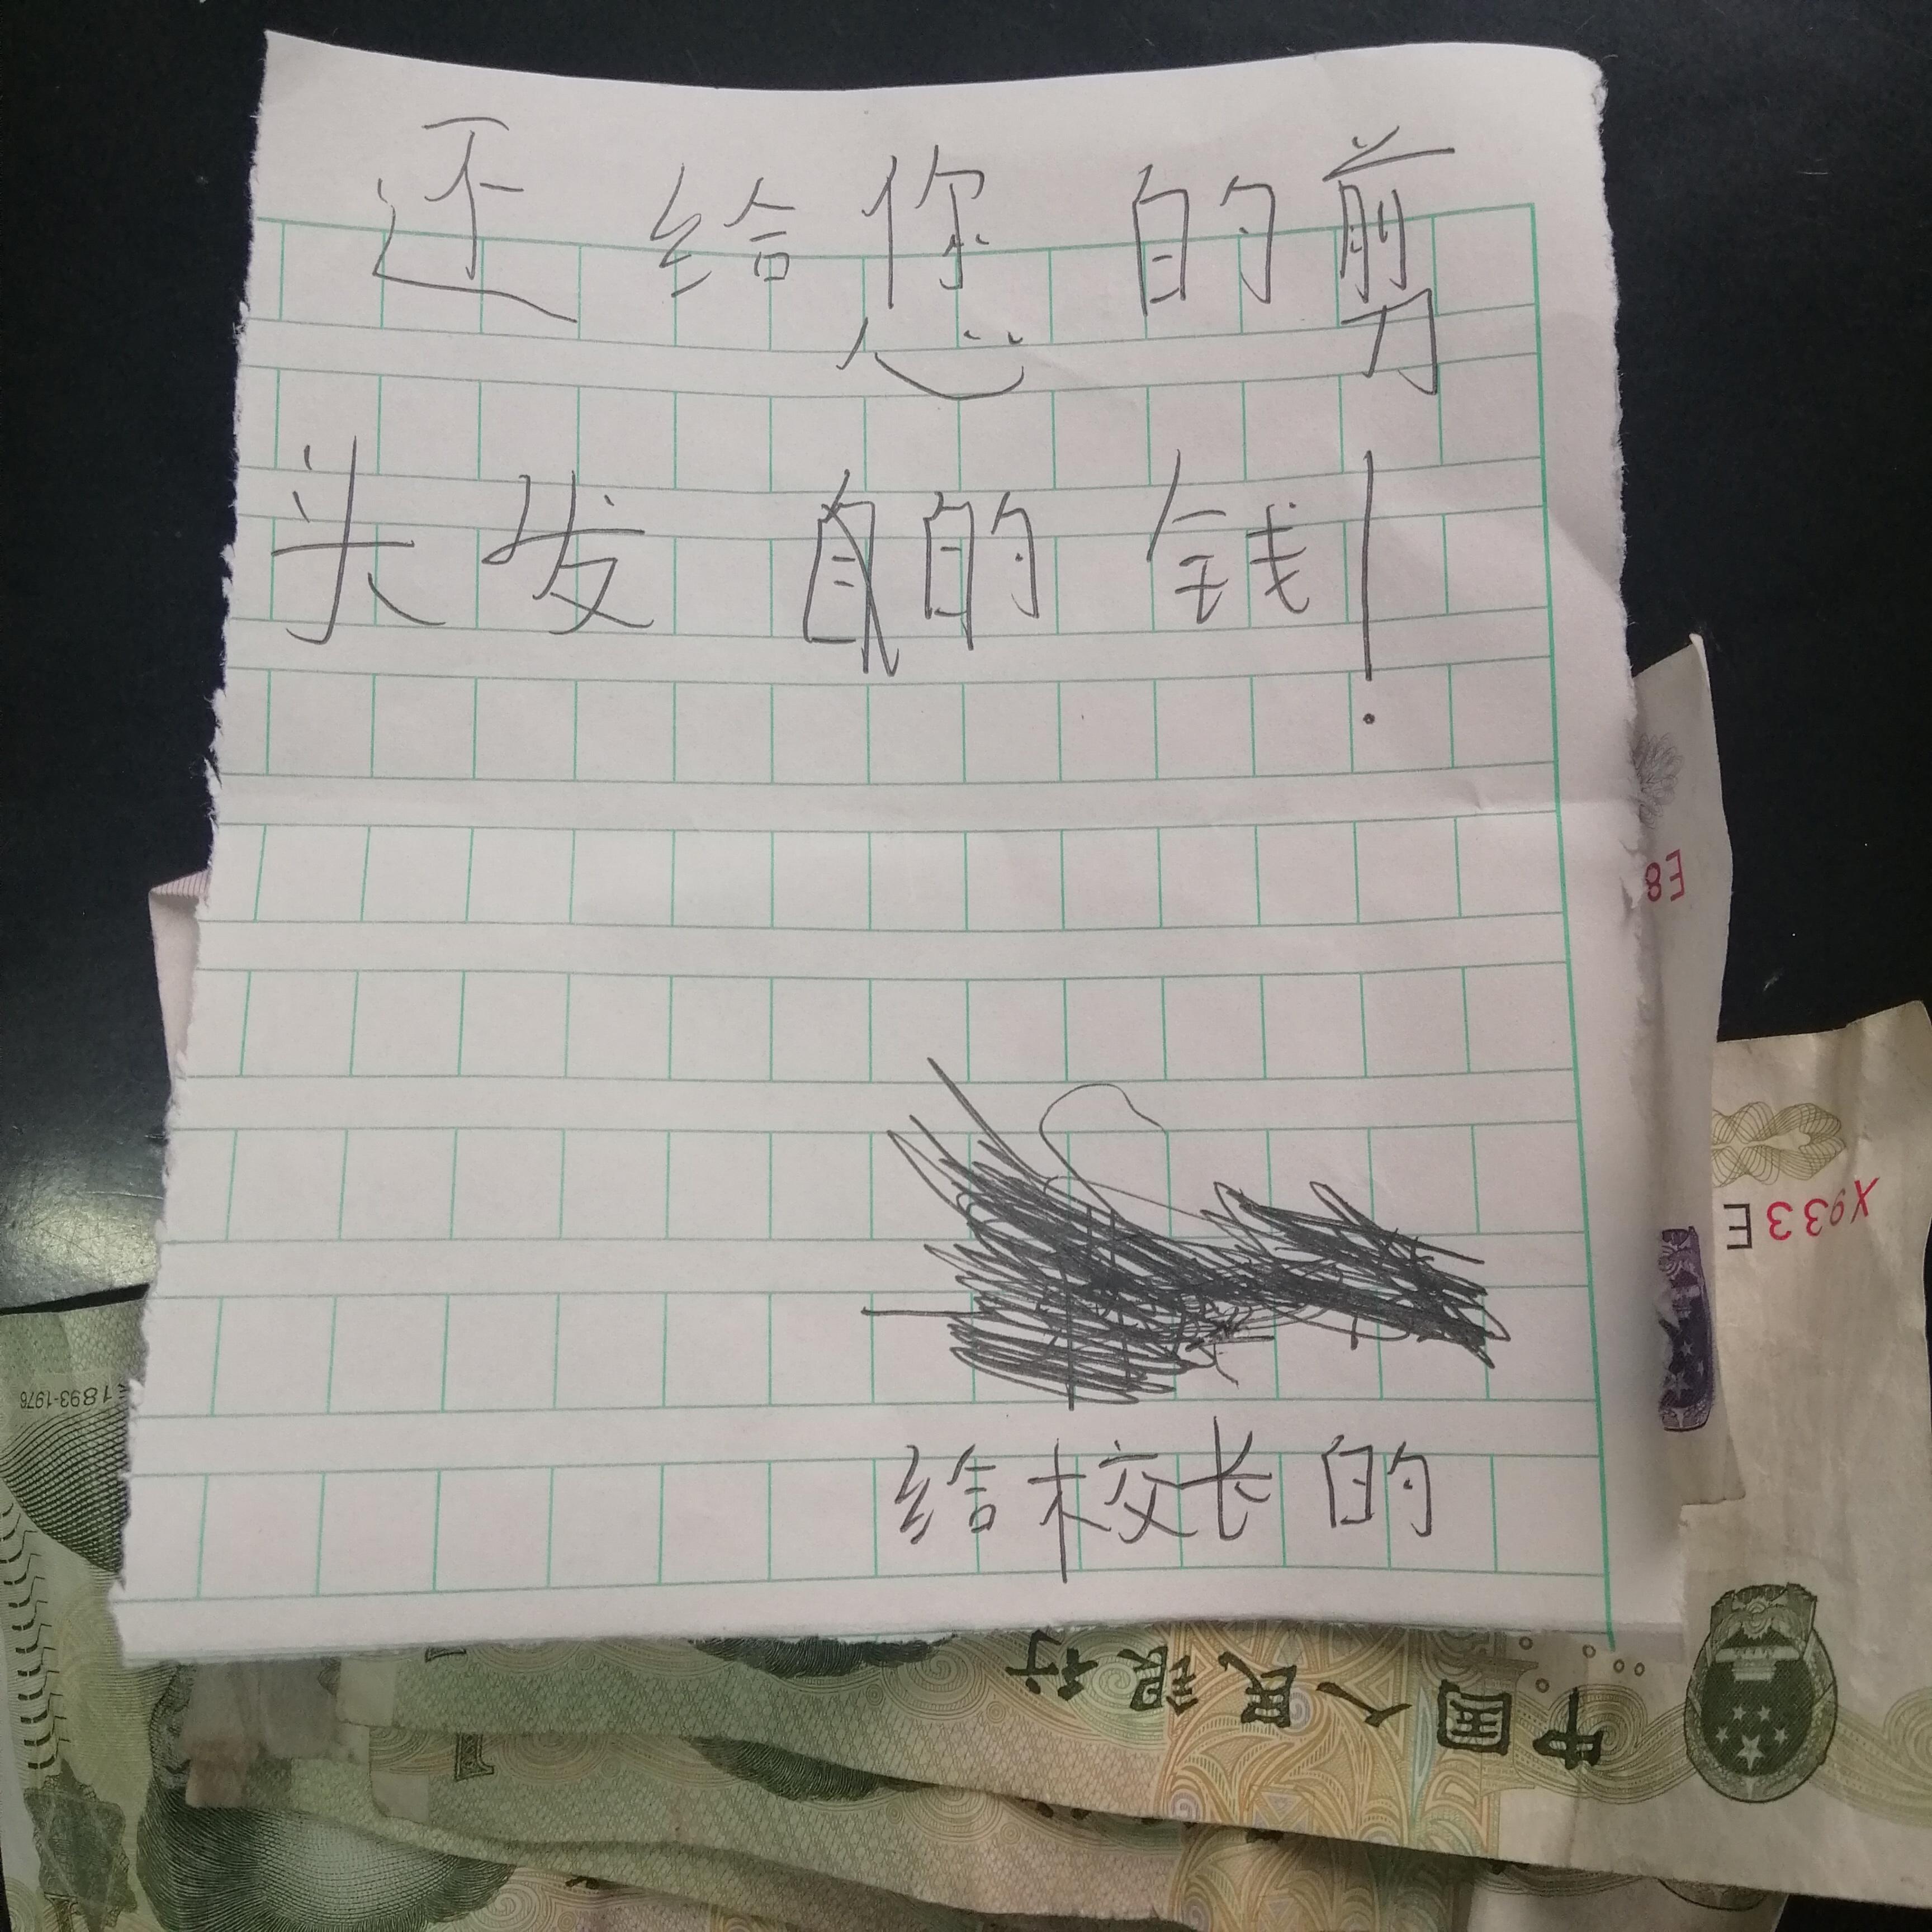 还给您的剪
头发的钱!
给校长的
E8
X933E
1893-1976
中国人民银行